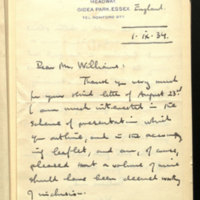 HEADWAY
GIDEA PARK, ESSEX
England.
TEL. ROMFORD 277
1. ix. 34.
Dear Mr. Williams:
Thank you very much
for your kind letter of August 23rd
I am much interested in the
scheme of presentation which
you outline, and in the accompany-
ing leaflet, and am, of course,
pleased that a volume of mine
should have been deemed worthy
of inclusion.